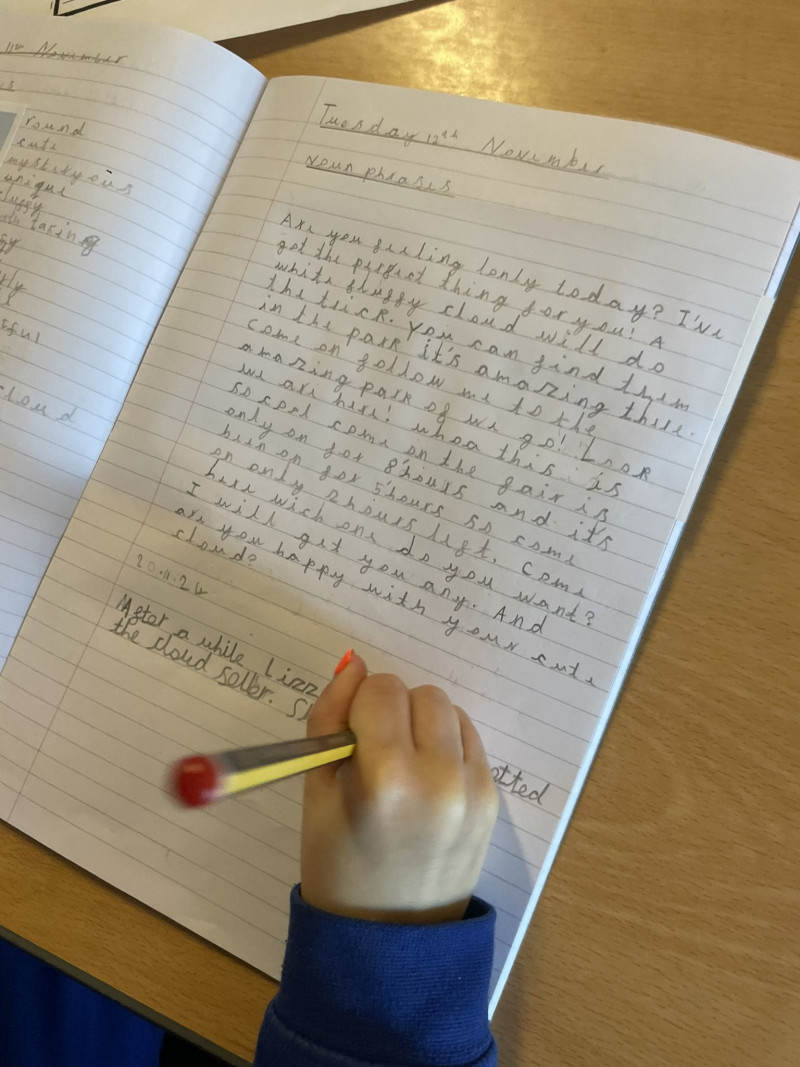 11th November
round
cute
mystityous
unique
taking
cloud
Tuesday 12th November
noun phrases
Are you feeling lonly today? I've
got the perfect thing for you! A
white fluffy cloud will do
the trick. You can find them
in the park it's amazing there.
come on follow me to the
amazing park of we go! Look
we are here! whoa this is
so cool come on the fair is
only on for 8hours and it's
been on for 5hours so come
on only 2hours left. Come
here wich one do you want?
I will get you any. And
are you happy with your cute
cloud?
20.11.24
After a while Lizz
the cloud seller. Sh
otted